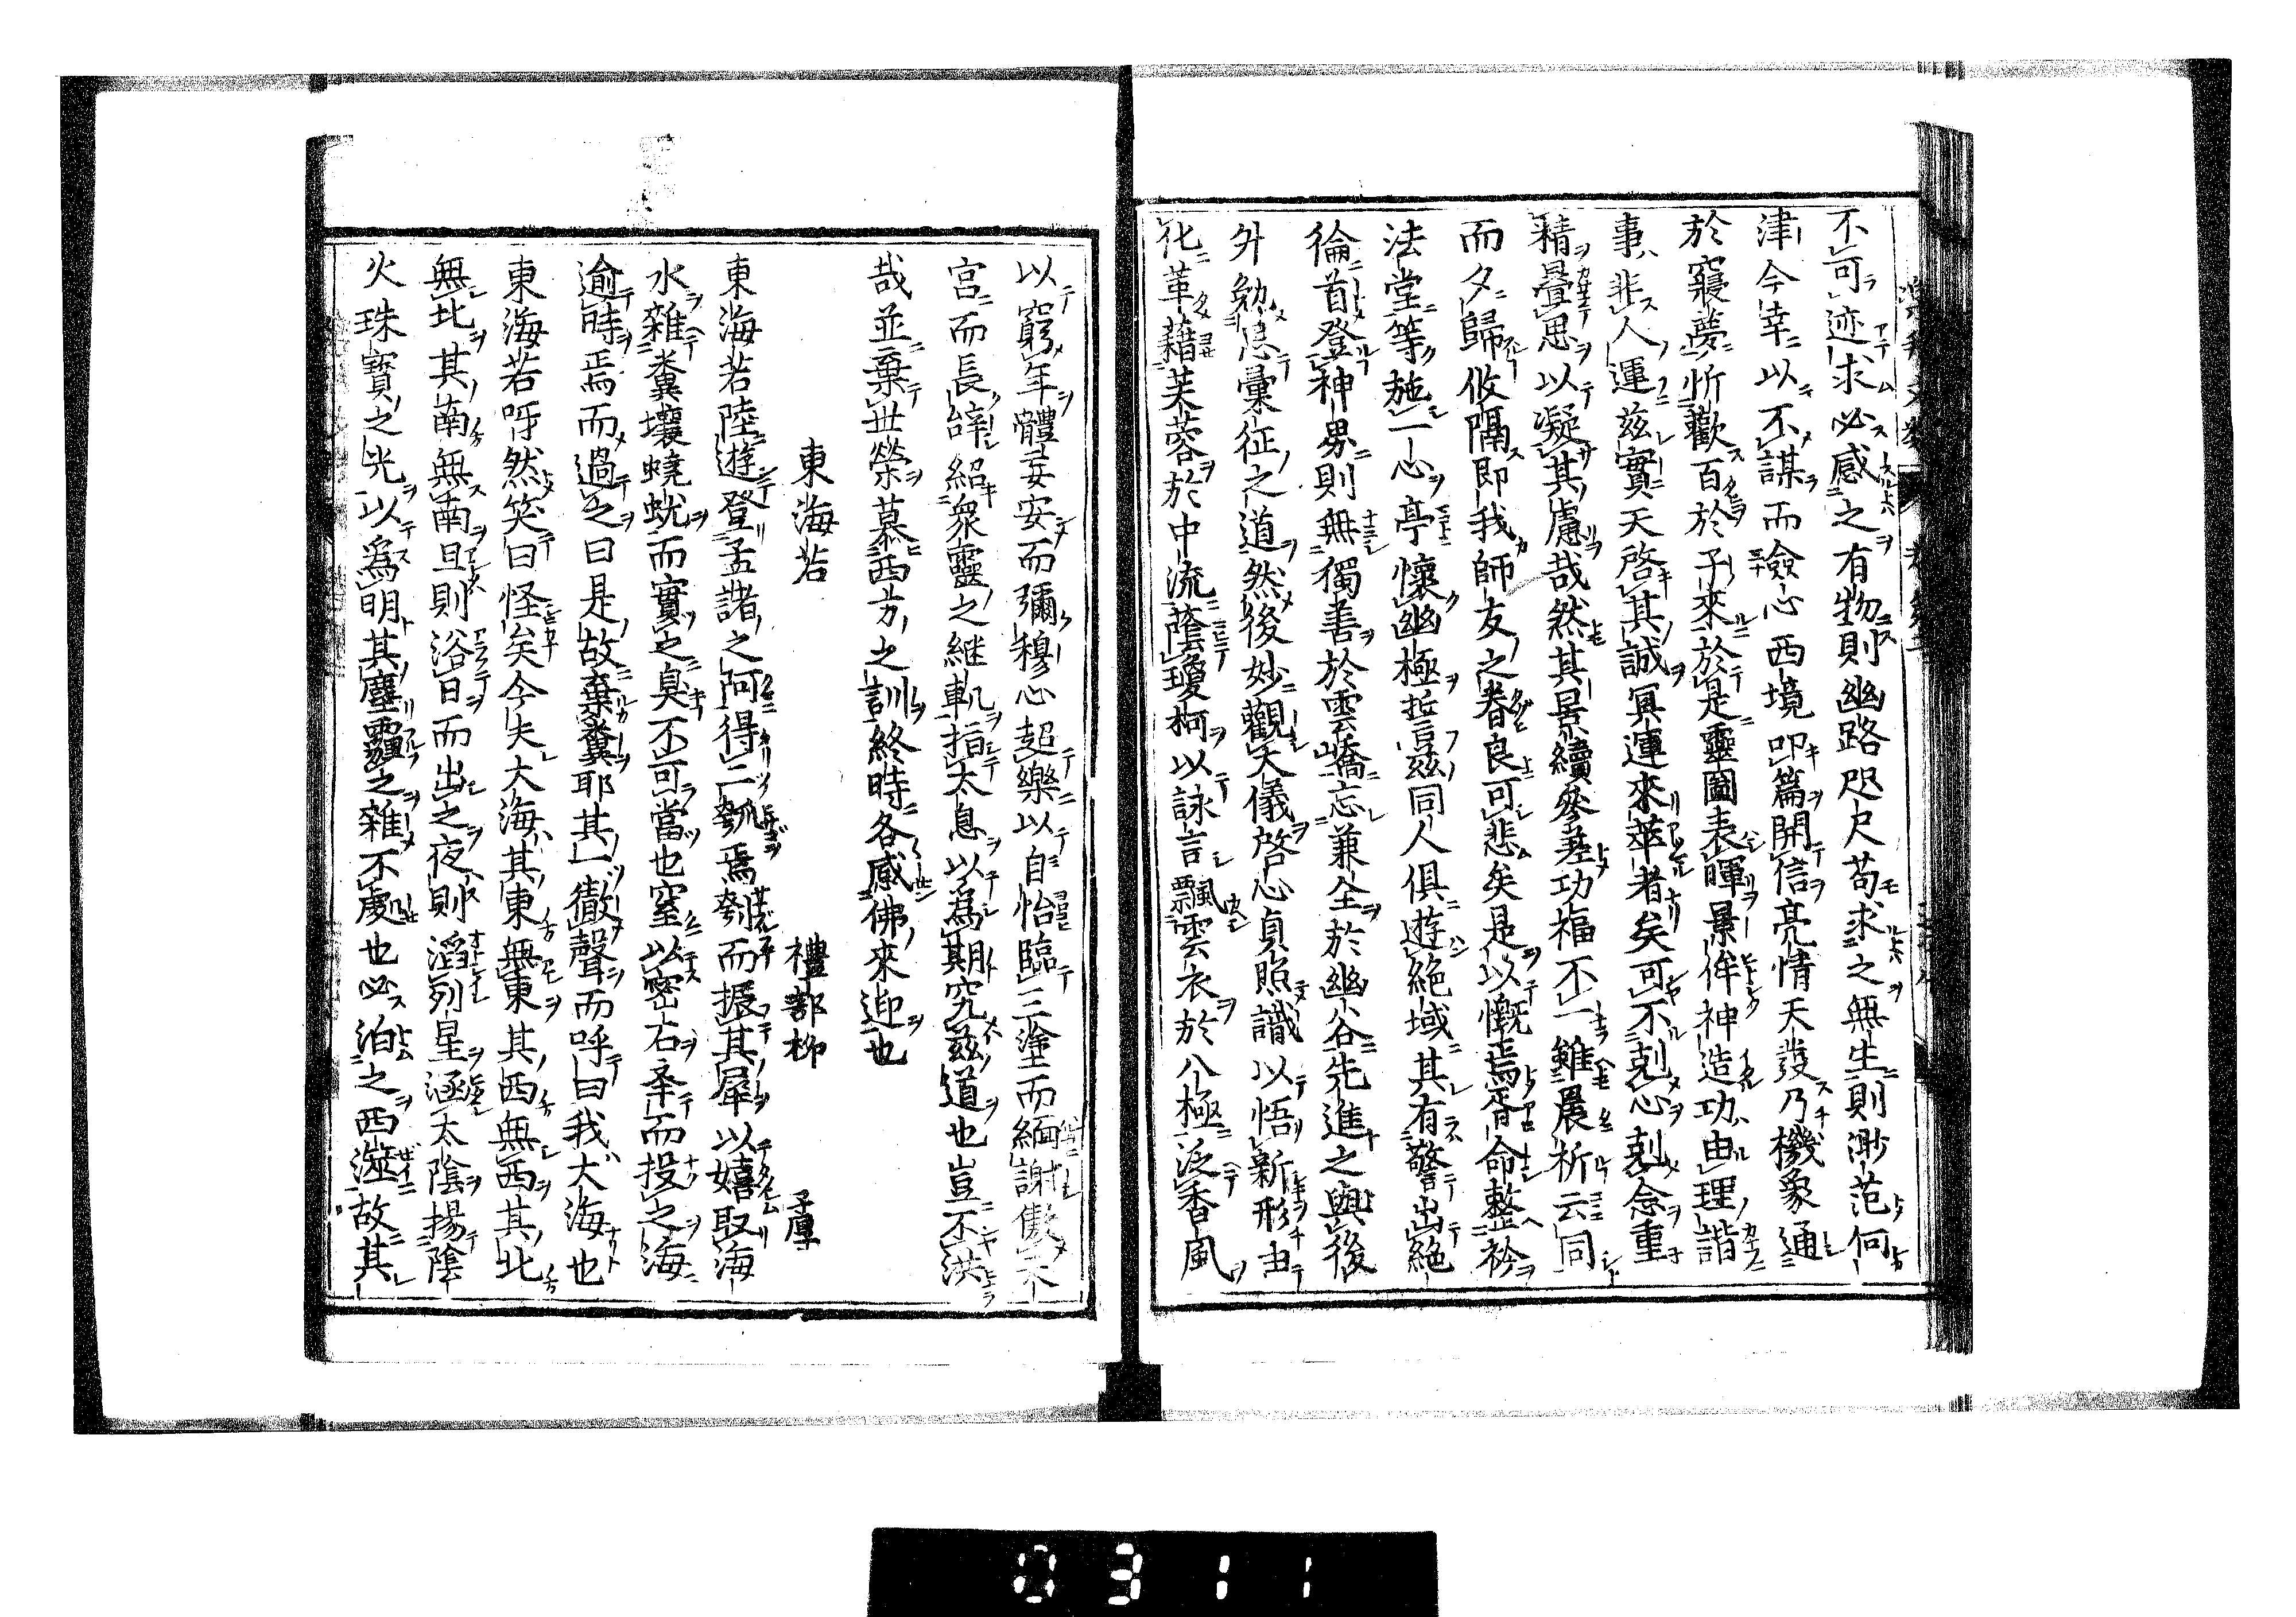 不可迹求必感之有物則幽路咫尺苟求之無生則渺茫何
津今幸以不謀而僉心西境叩篇開信亮情天發乃機象通
於寢夢忻歡百於子來於是靈圖表暉景侔神造功由理諧
事非人運茲實天啓其誠冥運來萃者矣可不剋心剋念重
精疊思以凝其慮哉然其景績參差功福不一雖晨祈云同
而夕歸攸隔即我師友之眷良可悲矣是以慨焉胥命整衿
法堂等施一心亭懷幽極誓茲同人俱遊絕域其有警出絕
倫首登神界則無獨善於雲嶠忘兼全於幽谷先進之與後
外勉思彙征之道然後妙觀大儀啓心貞照識以悟新形由
化革藉芙蓉於中流蔭瓊柯以詠言飄雲衣於八極泛香風
以窮年體妄安而彌穆心超樂以自怡臨三塗而緬謝傲天
宮而長辭紹衆靈之継軌指太息以為期究茲道也豈不洪
哉並棄世榮慕西方之訓終時各感佛來迎也
東海若
禮部柳
子厚
東海若陸遊登孟諸之阿得二瓠焉刳而振其犀以嬉取海
水雜糞壤蟯蚘而實之臭不可當也窒以密石夆而投之海
逾時焉而過之曰是故棄糞耶其一徹聲而呼曰我大海也
東海若呀然笑曰怪矣今夫大海其東無東其西無西其北
無北其南無南旦則浴日而出之夜則滔列星涵太陰揚陰
火珠寶之光以為明其塵霾之雜不處也必泊之西澨故其
0311